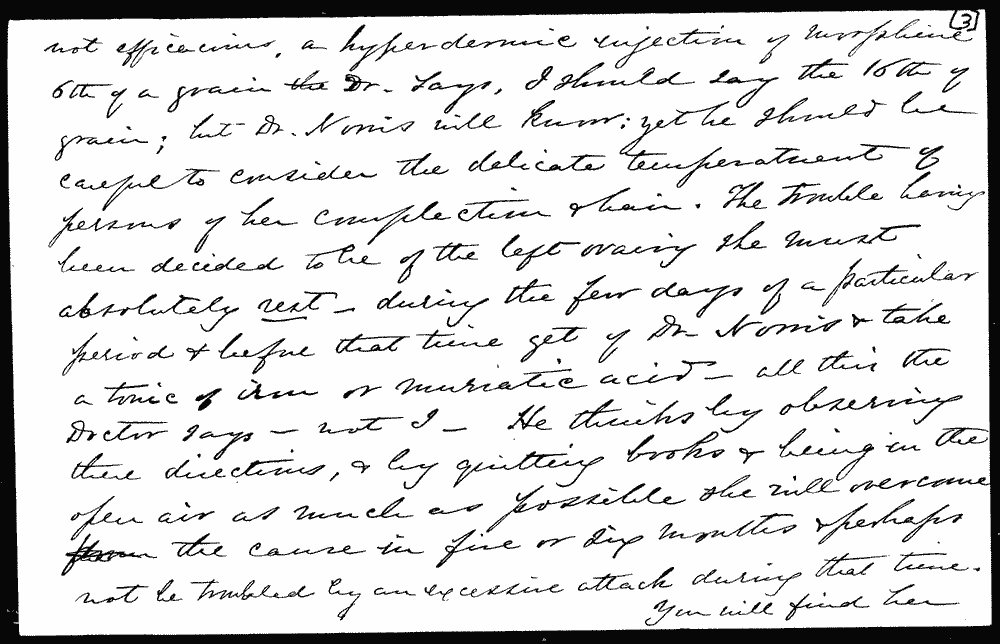 3
not efficacious, a hyperdermic injection of morphine
6th of a grain the Dr. says, I should say the 16th of
grain; but Dr. Norris will know; yet he should be
careful to consider the delicate temperatment of
persons of her complection & hair. The trouble having
been decided to be of the left ovairy she must
absolutely rest - during the few days of a particular
period & before that time get of Dr. Norris & take
a tonic of iron or muriatic acid - all this the
Doctor says - not I - He thinks by observing
these directions, & by quitting books & being in the
open air as much as possible she will overcome
the cause in five or six months & perhaps
not be troubled by an excessive attack during that time.
You will find her